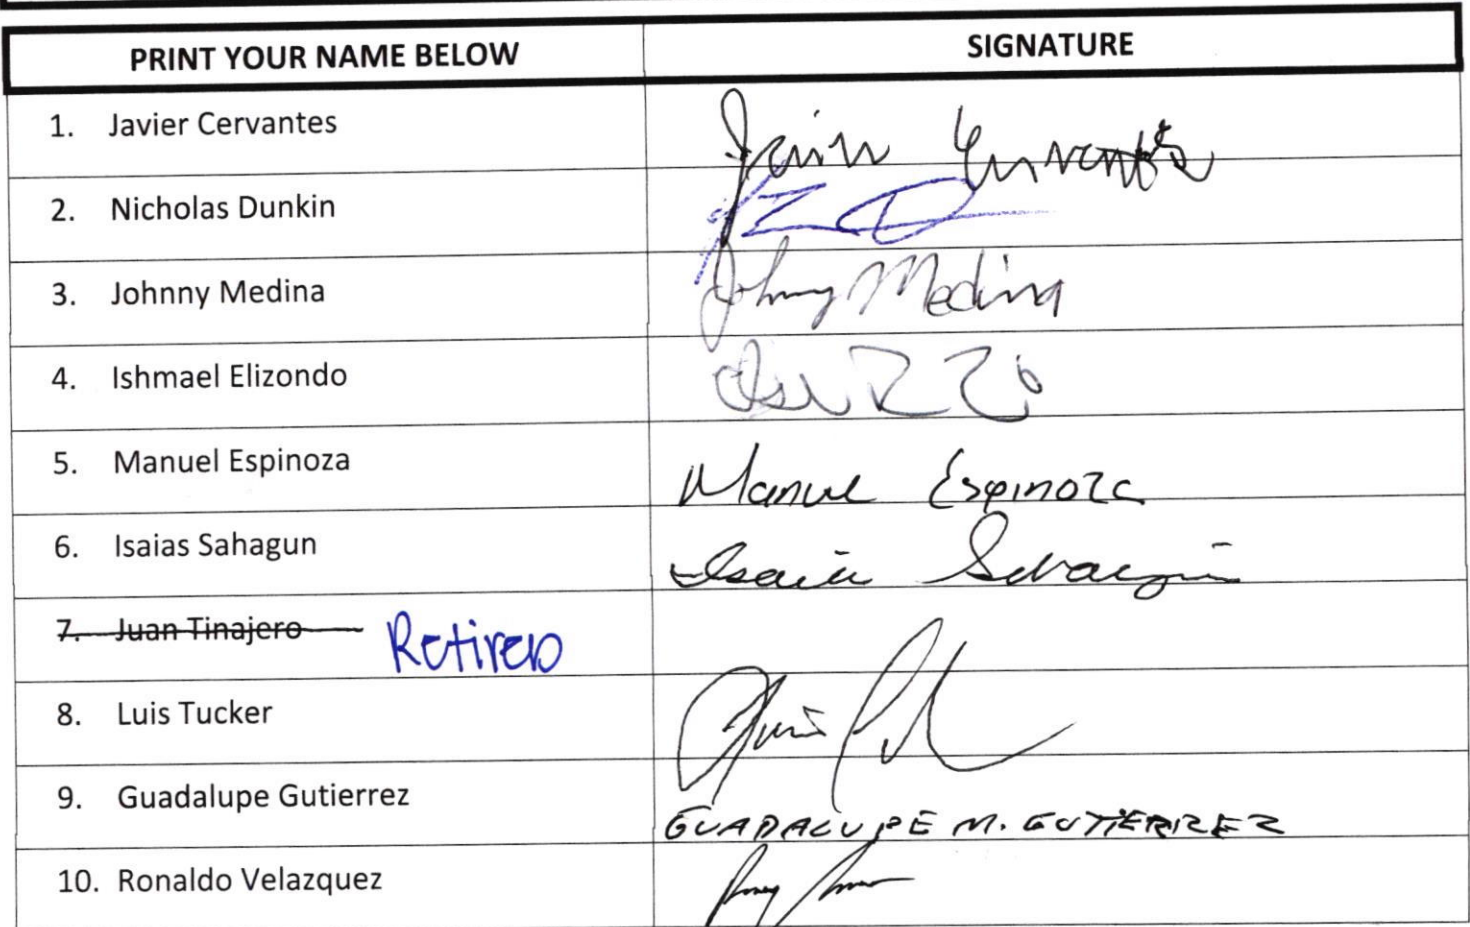 PRINT YOUR NAME BELOW SIGNATURE
1. Javier Cervantes Javier Cervantes
2. Nicholas Dunkin
3. Johnny Medina Johnny Medina
4. Ishmael Elizondo
5. Manuel Espinoza Manuel Espinoza
6. Isaias Sahagun Isaias Sahagun
7. Juan Tinajero Retired
8. Luis Tucker
9. Guadalupe Gutierrez GUADALUPE M. GUTIERREZ
10. Ronaldo Velazquez